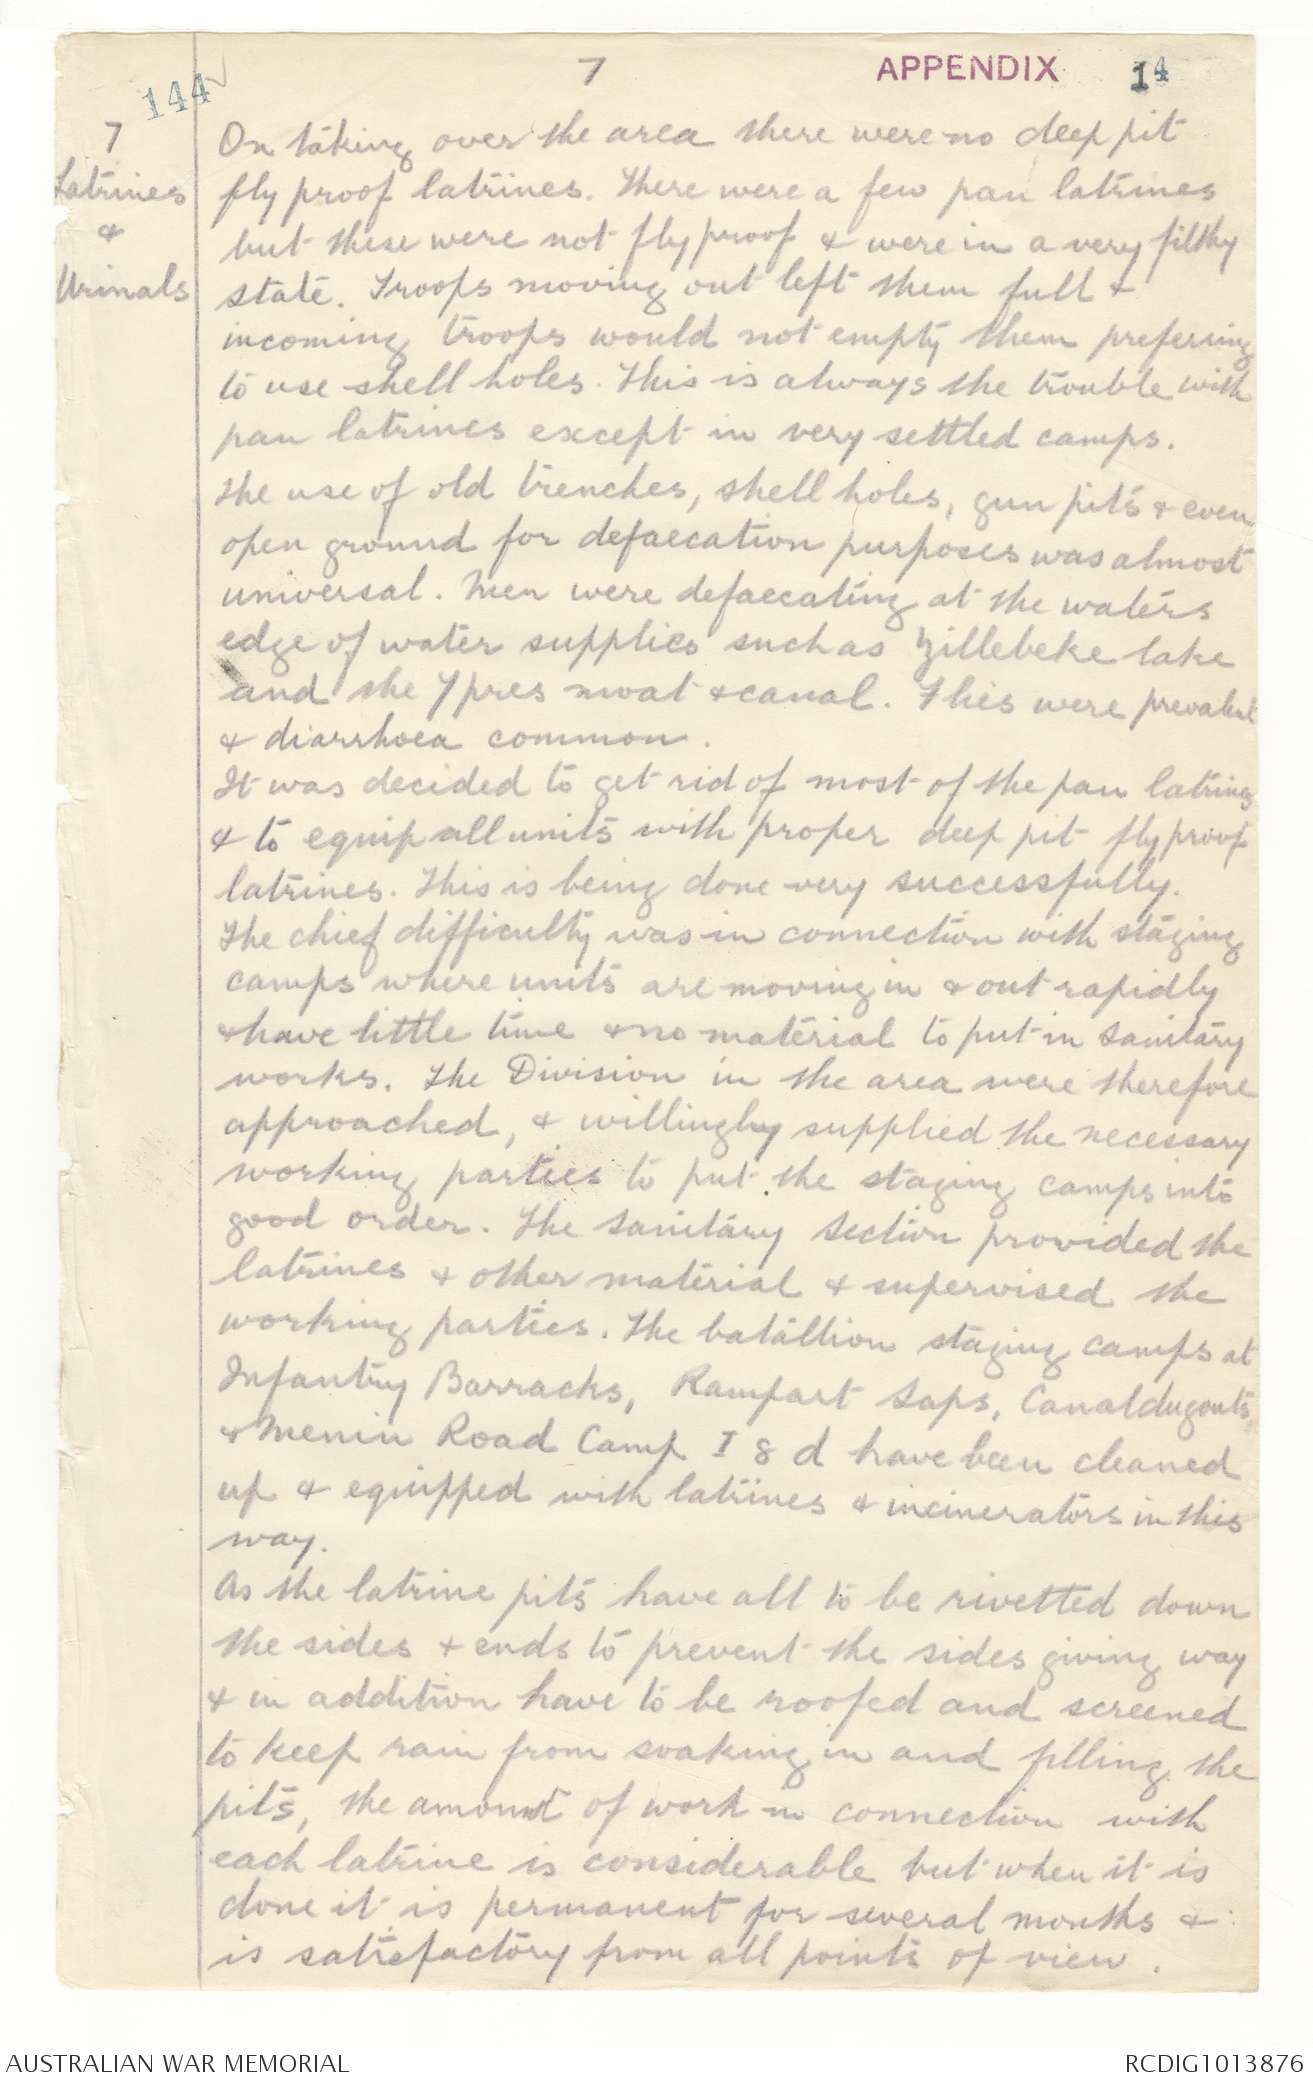 144
7
APPENDIX 14
7
Latrines
&
Urinals
On taking over the area there were no deep pit
fly proof latrines. There were a few pan latrines
but these were not fly proof & were in a very filthy
state. Troops moving out left them full &
incoming troops would not empty them preferring
to use shell holes. This is always the trouble with
pan latrines except in very settled camps.
The use of old trenches, shell holes, gun pits & even
open ground for defaecation purposes was almost
universal. Men were defaecating at the waters
edge of water supplies such as Zillebeke lake
and the Ypres moat & canal. Flies were prevalent
& diarrhoea common.
It was decided to get rid of most of the pan latrines
& to equip all units with proper deep pit fly proof
latrines. This is being done very successfully.
The chief difficulty was in connection with staging
camps where units are moving in & out rapidly
& have little time & no material to put in sanitary
works. The Division in the area were therefore
approached, & willingly supplied the necessary
working parties to put the staging camps into
good order. The Sanitary Section provided the
latrines & other material & supervised the
working parties. The batallion staging camps at
Infantry Barracks, Rampart Saps, Canal dugouts
& Menin Road Camp I 8 d have been cleaned
up & equipped with latrines & incinerators in this
way.
As the latrine pits have all to be rivetted down
the sides & ends to prevent the sides giving way
& in addition have to be roofed and screened
to keep rain from soaking in and filling the
pits, the amount of work in connection with
each latrine is considerable but when it is
done it is permanent for several months &
is satisfactory from all points of view.
AUSTRALIAN WAR MEMORIAL
RCDIG1013876